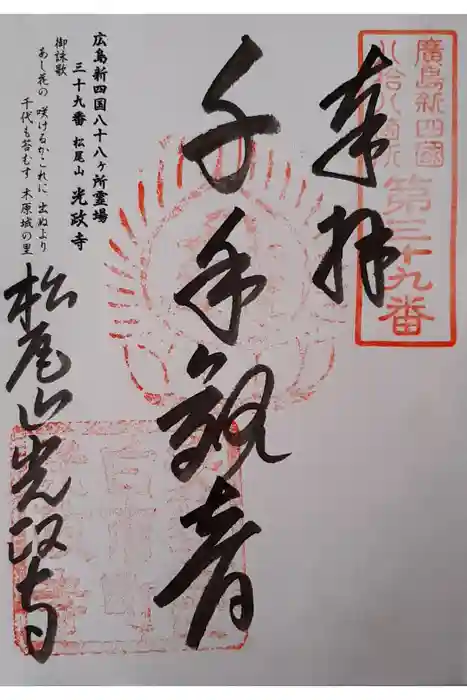 廣島新四國
八拾八箇所
第三十九番
奉拝
千手観音
広島新四国八十八ヶ所霊場
三十九番 松尾山 光政寺
御詠歌
あし花の 咲けるかこれに 出ぬより
千代も苔むす 木原城の里
松尾山光政寺